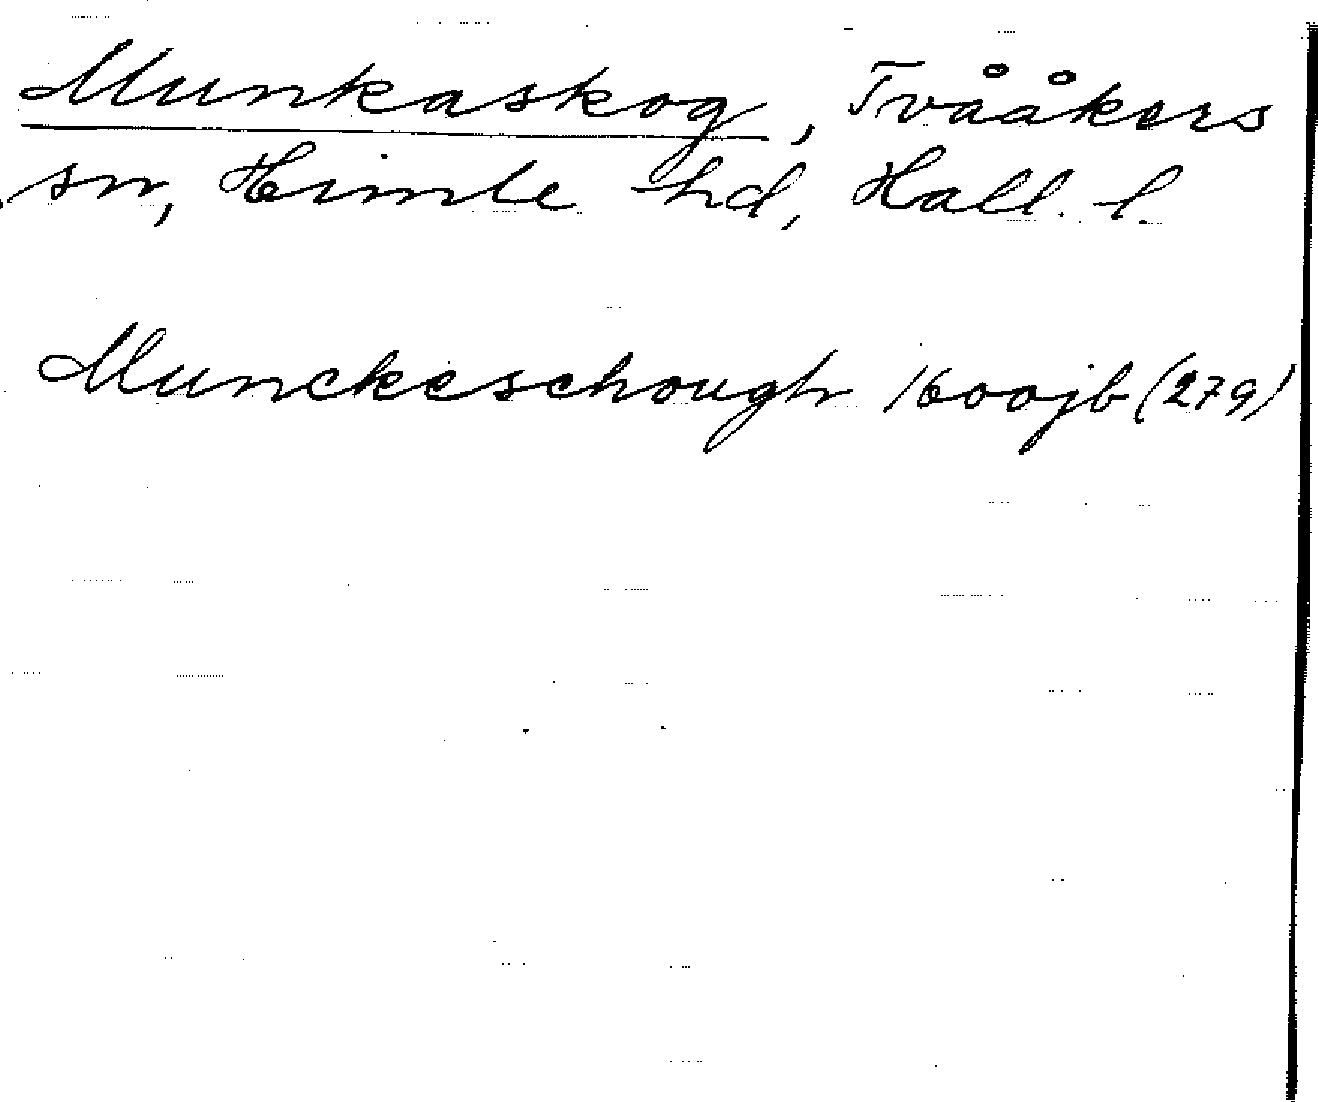 Munkaskog, Tvååkers
sn, Himle hd, Hall. l.
Munckeschough 1600jb (279)